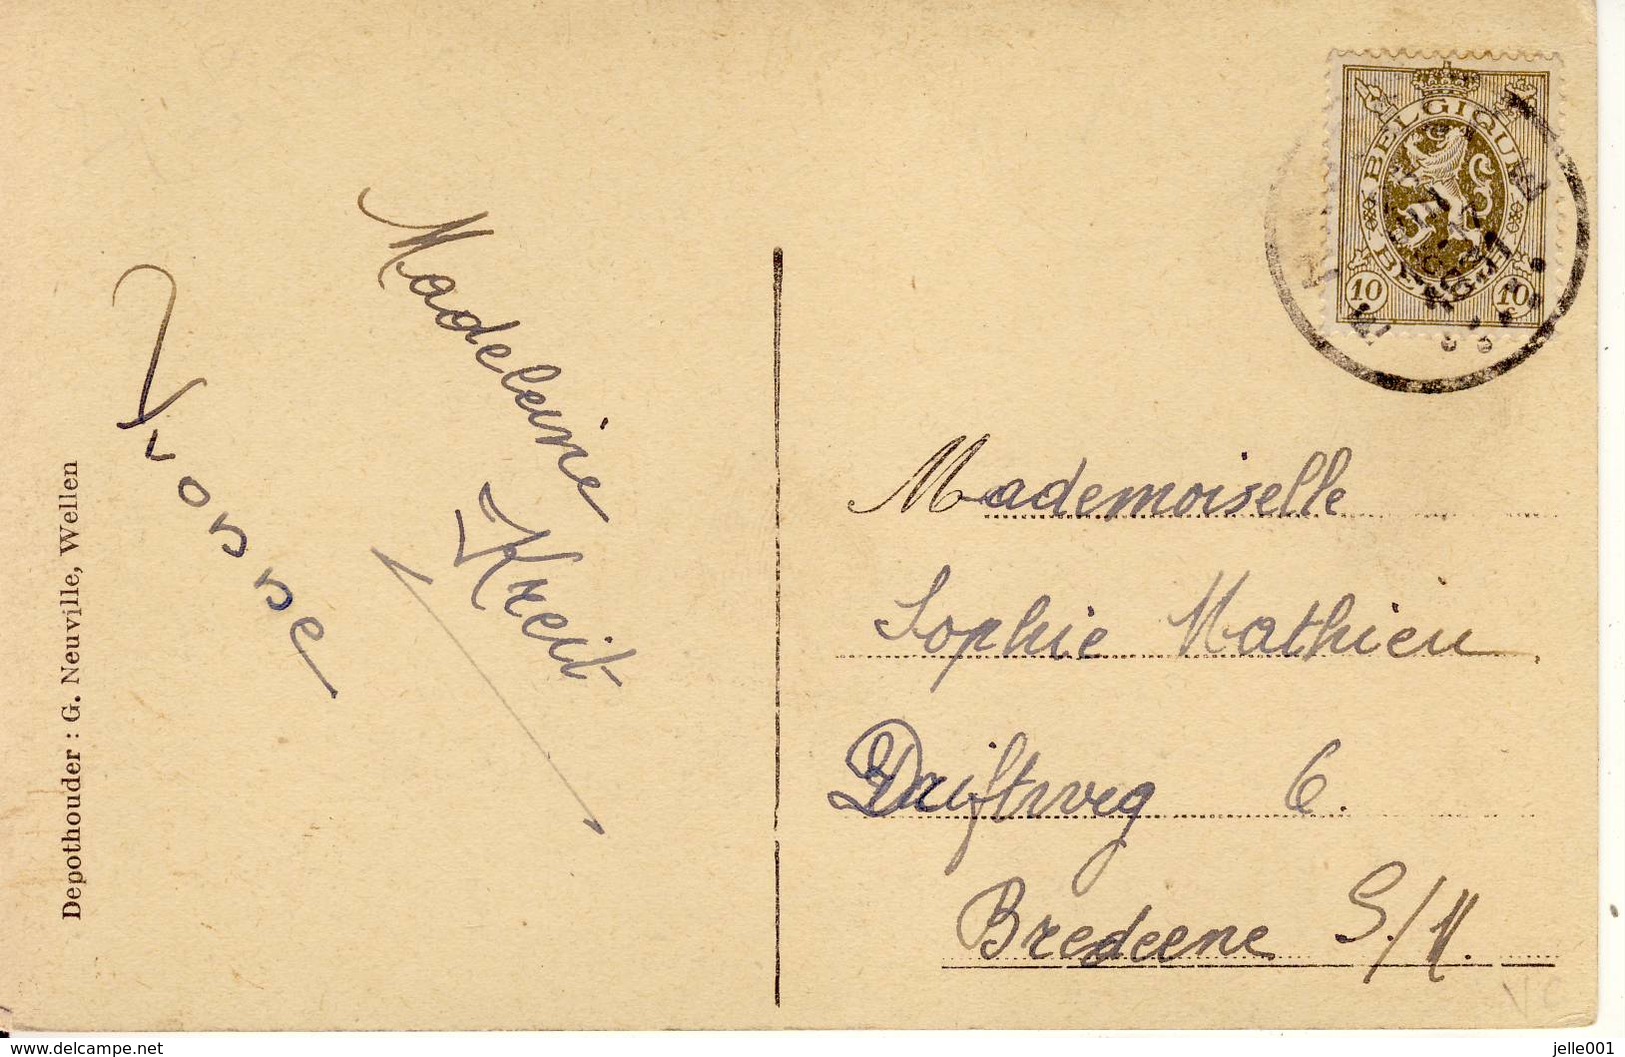 Depothouder : G. Neuville, Wellen
Yvonne
Madeleine
Kreit
BELGIQUE
BELGIË
10 10
Mademoiselle
Sophie Mathieu
Driftweg 6.
Bredeene S/M.
delcampe.net
jelle001